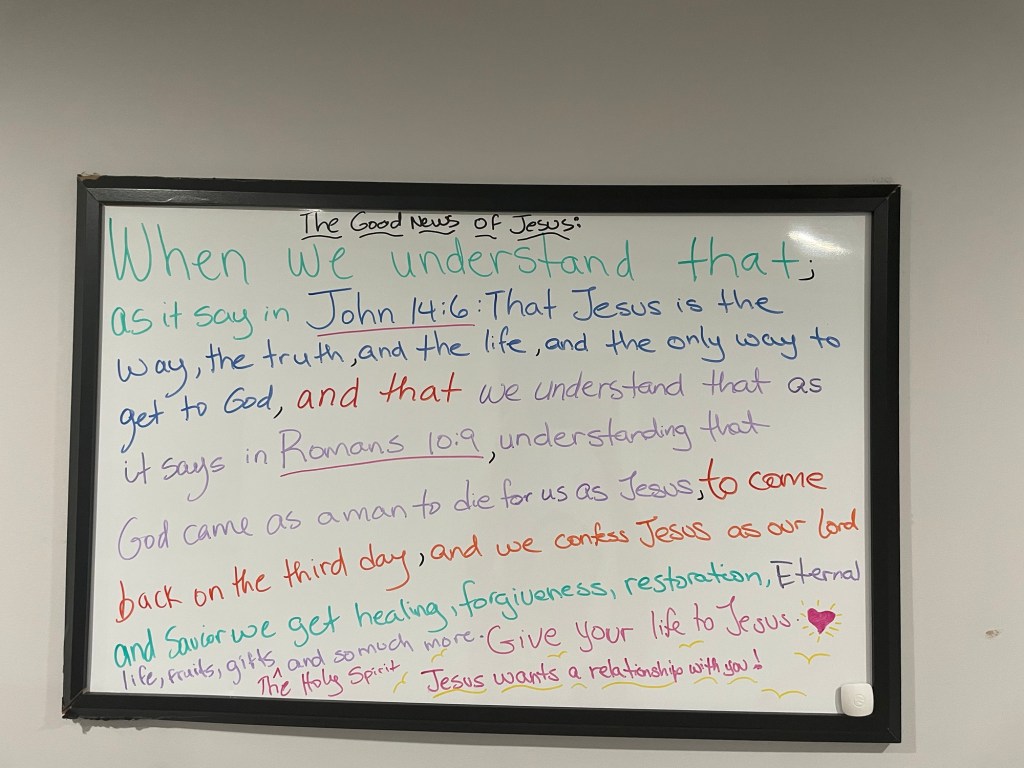 The Good News of Jesus:
When we understand that;
as it say in John 14:6: That Jesus is the
way, the truth, and the life, and the only way to
get to God, and that we understand that as
it says in Romans 10:9, understanding that
God came as a man to die for us as Jesus, to come
back on the third day, and we confess Jesus as our Lord
and Savior we get healing, forgiveness, restoration, Eternal
life, fruits, gifts, ^ and so much more. Give your life to Jesus.
The Holy Spirit Jesus wants a relationship with you!